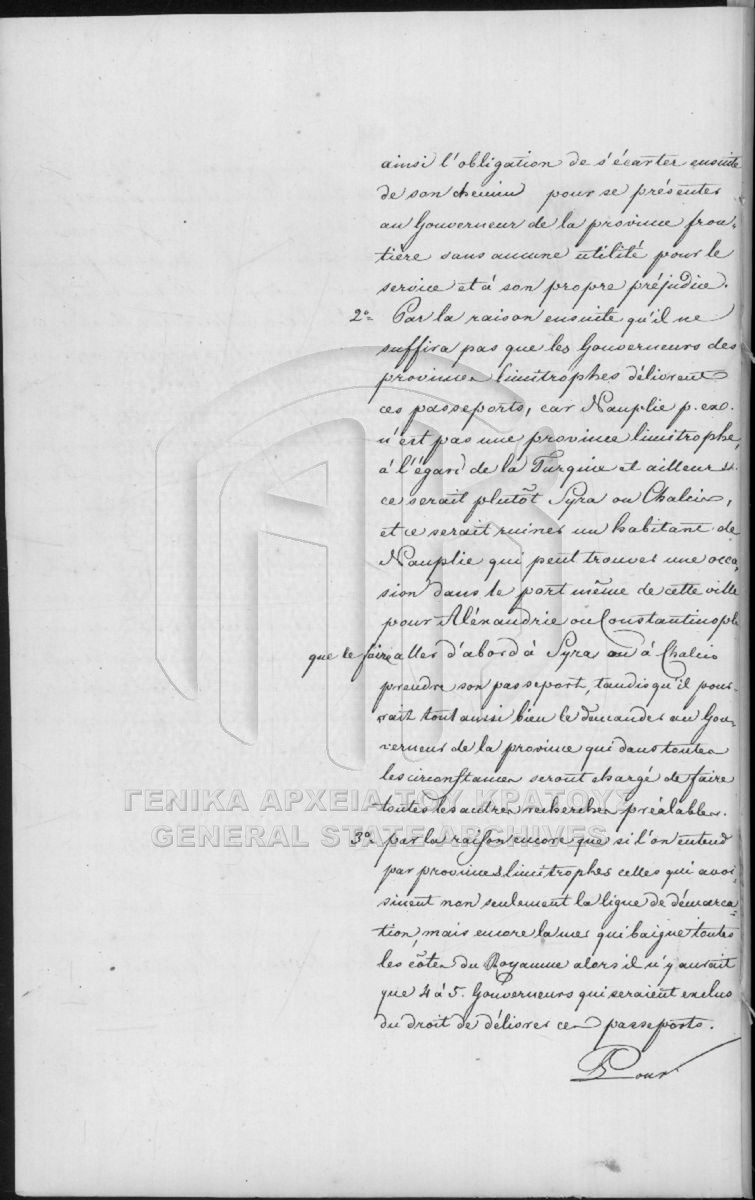 ainsi l'obligation de s'écarter ensuite
de son chemin pour se présenter
au Gouverneur de la province fron-
tière sans aucune utilité pour le
service et à son propre préjudice.
2° Par la raison ensuite qu'il ne
suffira pas que les Gouverneurs des
provinces limitrophes délivrent
ces passeports, car Nauplie p. ex.
n'est pas une province limitrophe,
à l'égard de la Turquie et ailleurs.
ce serait plutôt Syra ou Chalcis,
et ce serait ruiner un habitant de
Nauplie qui peut trouver une occa-
sion dans le port même de cette ville
pour Aléxandrie ou Constantinople
que le faire aller d'abord à Syra ou à Chalcis
prendre son passeport, tandisqu'il pour-
rait tout aussi bien le demander au Gou-
verneur de la province qui dans toutes
les circonstances seront chargé de faire
toutes les autres recherches préalables.
3° par la raison encore que si l'on entend
par provinces limitrophes celles qui avoi-
sinent non seulement la ligne de démarca-
tion, mais encore la mer qui baigne toutes
les côtes du Royaume alors il n'y aurait
que 4 à 5. Gouverneurs qui seraient exclus
du droit de délivrer ces passeports.
Pour
ΓΕΝΙΚΑ ΑΡΧΕΙΑ ΤΟΥ ΚΡΑΤΟΥΣ
GENERAL STATE ARCHIVES